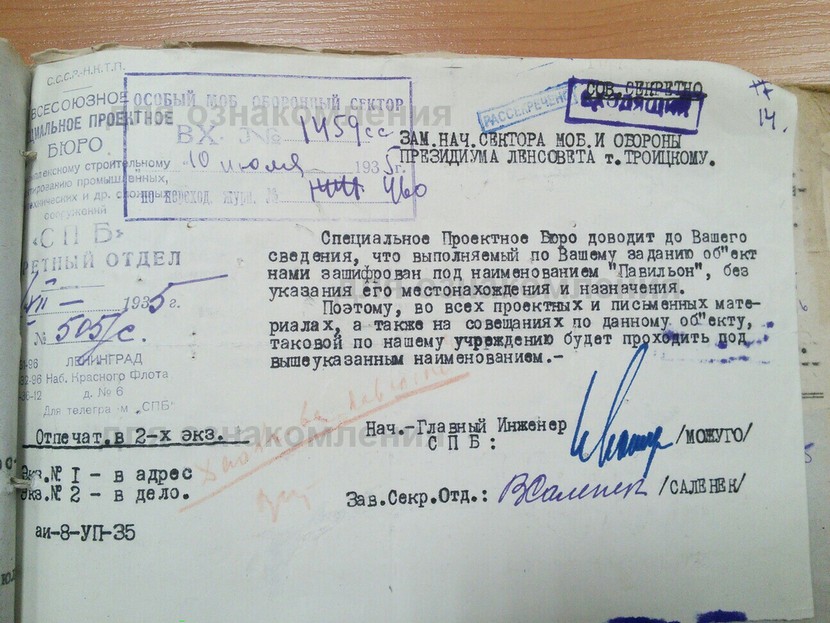 С.С.С.Р.-Н.К.Т.П.
ВСЕСОЮЗНОЕ
ПРОЕКТНОЕ
БЮРО
строительному
промышленных,
и др. сложных
сооружений
«СПБ»
ОТДЕЛ
1935г.
№ 505/с.
ЛЕНИНГРАД
Наб. Красного Флота
д. № 6
Для телеграмм „СПБ"
ОСОБЫЙ МОБ. ОБОРОННЫЙ СЕКТОР
ВХ. № 1459сс
10 июля 1935г.
по переход. журн. № 460
РАССЕКРЕЧЕНО
СОВ. СЕКРЕТНО
14.
ЗАМ. НАЧ. СЕКТОРА МОБ. И ОБОРОНЫ
ПРЕЗИДИУМА ЛЕНСОВЕТА т. ТРОИЦКОМУ.
Специальное Проектное Бюро доводит до Вашего
сведения, что выполняемый по Вашему заданию об"ект
нами зашифрован под наименованием "Павильон", без
указания его местонахождения и назначения.
Поэтому, во всех проектных и письменных мате-
риалах, а также на совещаниях по данному об"екту,
таковой по нашему учреждению будет проходить под
вышеуказанным наименованием.-
Отпечат. в 2-х экз.
Экз.№ I - в адрес
Экз.№ 2 - в дело.
аи-8-УП-35
Нач.-Главный Инженер
СПБ: /МОЖУГО/
Зав.Секр.Отд.: ВСаленек /САЛЕНЕК/
для ознакомления
для ознакомления
для ознакомления